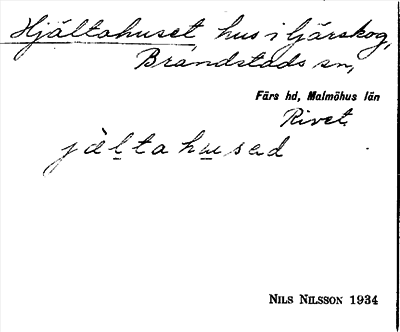 Hjältahuset, hus i ljärskog,
Brandstads sn,
Färs hd, Malmöhus län
Rivet.
jàltahusad
NILS NILSSON 1934